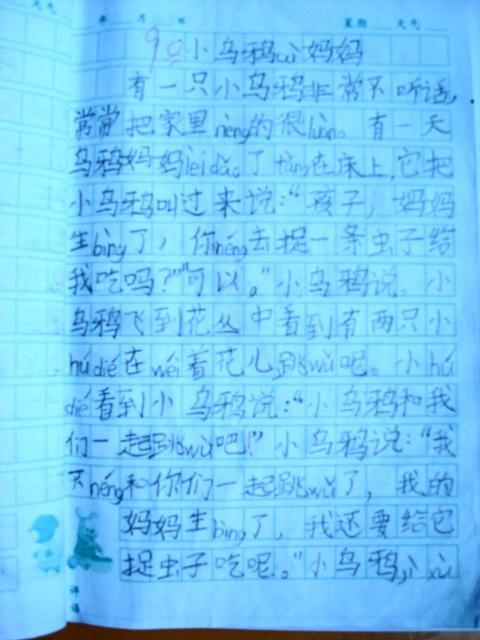 天气 年 月 日 星期 天气
90 小乌鸦ài妈妈
有一只小乌鸦非常不听话,
常常把家里nèng的很luàn。有一天
乌鸦妈妈lèi dǎo了tǎng在床上,它把
小乌鸦叫过来说:“孩子,妈妈
生bìng了,你néng去捉一条虫子给
我吃吗?”“可以。”小乌鸦说。小
乌鸦飞到花丛中看到有两只小
hú dié在wéi着花儿跳wǔ呢。小hú
dié看到小乌鸦说:“小乌鸦和我
们一起跳wǔ吧!”小乌鸦说:“我
不néng和你们一起跳wǔ了,我的
妈妈生bìng了,我还要给它
捉虫子吃呢。”小乌鸦
评语